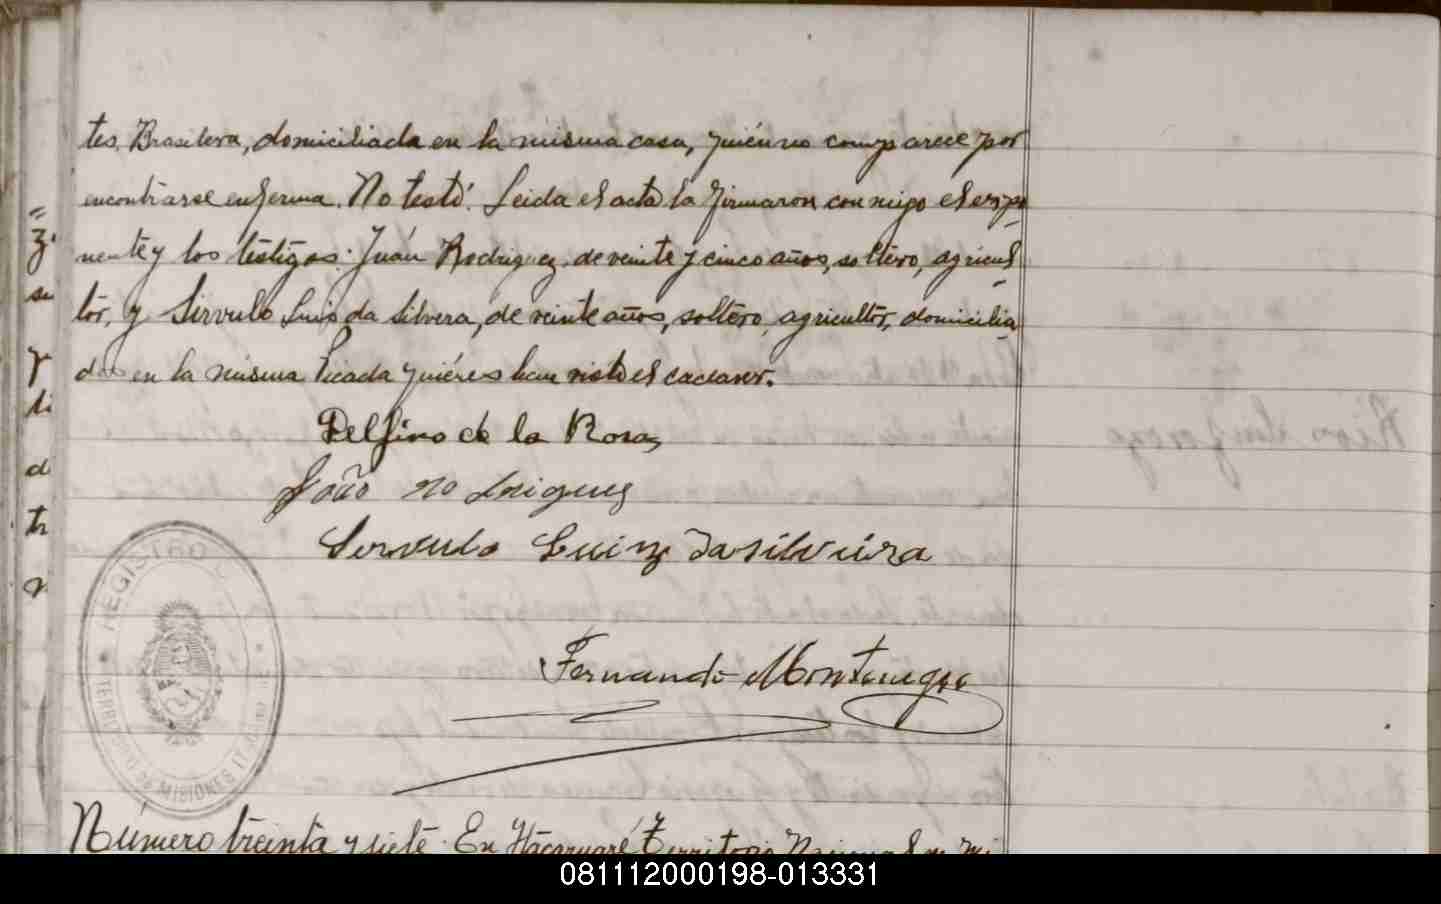 tes, Brasilera, domiciliada en la misma casa, quién no comparece por
encontrarse enferma. No testó. Leida el acta la firmaron conmigo el expo
nente y los testigos: Juán Rodriguez, de veinte y cinco años, soltero, agricul
tor, y Sirvulo Luis da Silvera, de veinte años, soltero, agricultor, domicilia
dos en la misma Picada quiénes han visto el cadaver.
Delfino de la Rosa
João rodrigues
Servulo Luiz da silveira
REGISTRO
TERRITORIO DE MISIONES
Fernando Montenegro
Número treinta y siete. En Itacaruaré Territorio Nacional de Mi
081112000198-013331